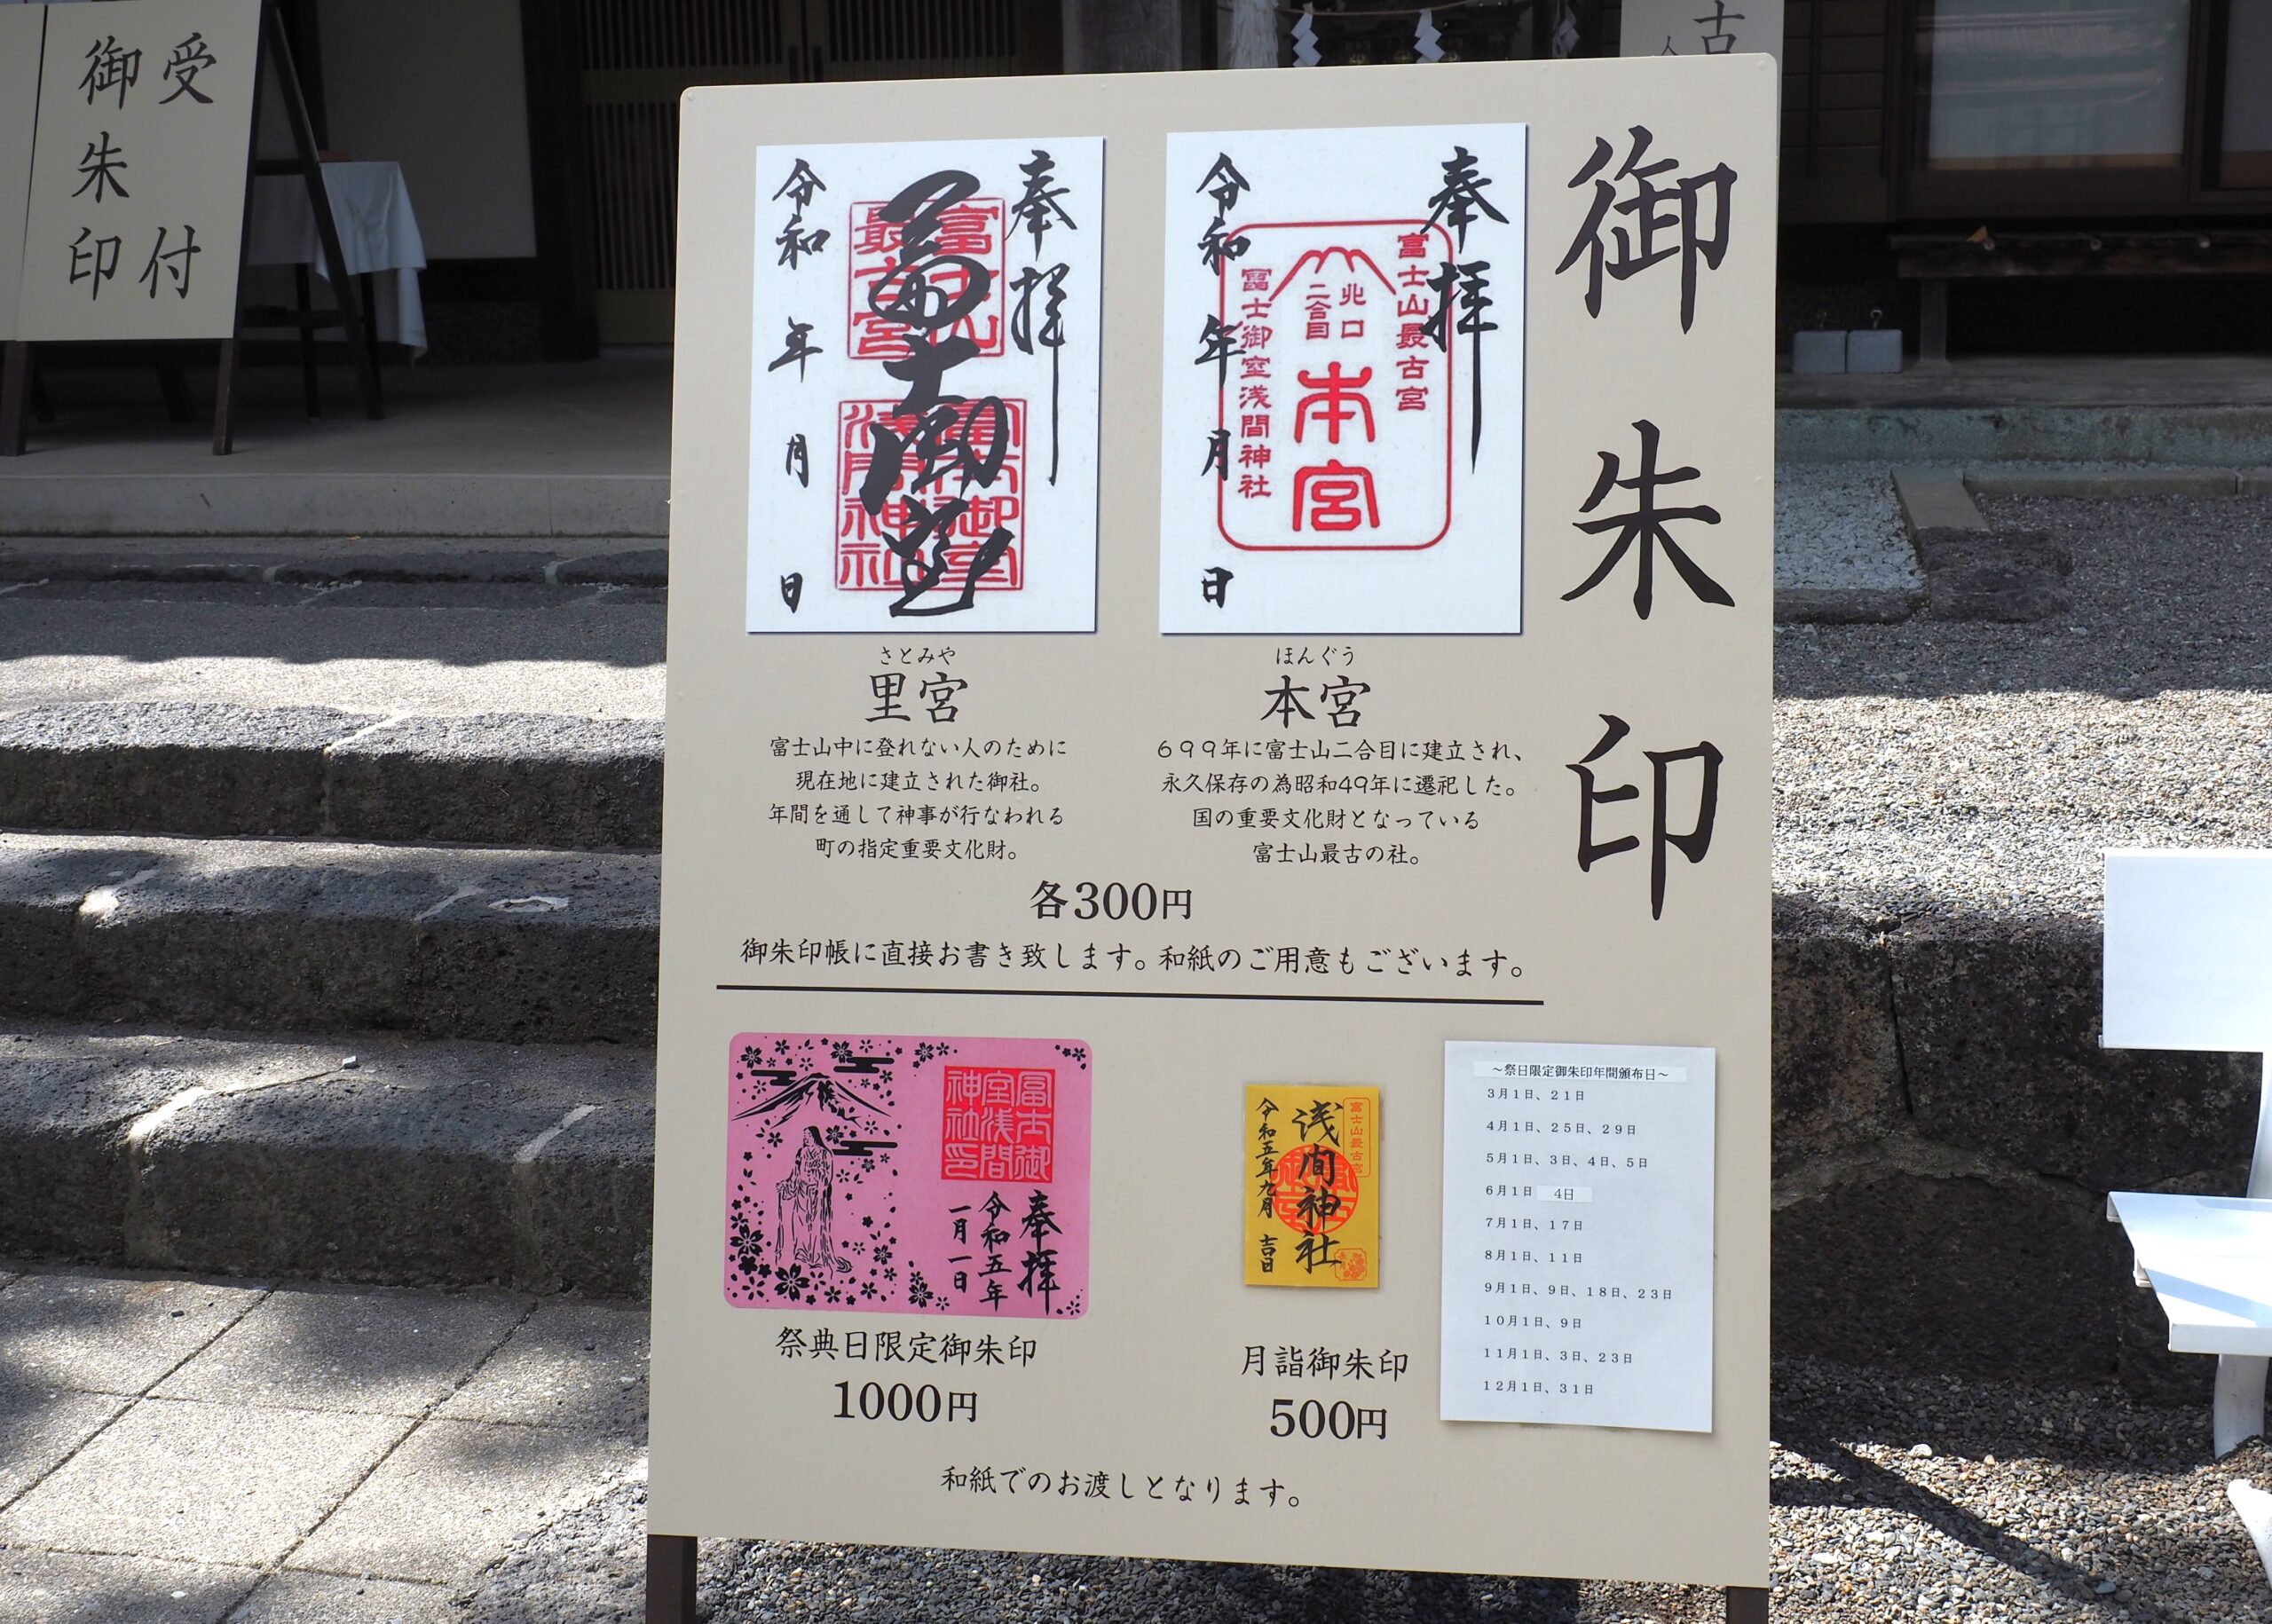 受付
御朱印
古
御朱印
奉拝
富士山最古宮
北口
二合目
本宮
冨士御室浅間神社
令和 年 月 日
奉拝
富士山
最古宮
冨士御室
浅間神社
令和 年 月 日
ほんぐう
本宮
699年に富士山二合目に建立され、
永久保存の為昭和49年に遷祀した。
国の重要文化財となっている
富士山最古の社。
さとみや
里宮
富士山中に登れない人のために
現在地に建立された御社。
年間を通して神事が行なわれる
町の指定重要文化財。
各300円
御朱印帳に直接お書き致します。和紙のご用意もございます。
冨士御
室浅間
神社印
奉拝
令和五年
一月一日
祭典日限定御朱印
1000円
富士山最古宮
浅間神社
令和五年九月 吉日
月詣御朱印
500円
～祭日限定御朱印年間頒布日～
3月1日、21日
4月1日、25日、29日
5月1日、3日、4日、5日
6月1日 4日
7月1日、17日
8月1日、11日
9月1日、9日、18日、23日
10月1日、9日
11月1日、3日、23日
12月1日、31日
和紙でのお渡しとなります。